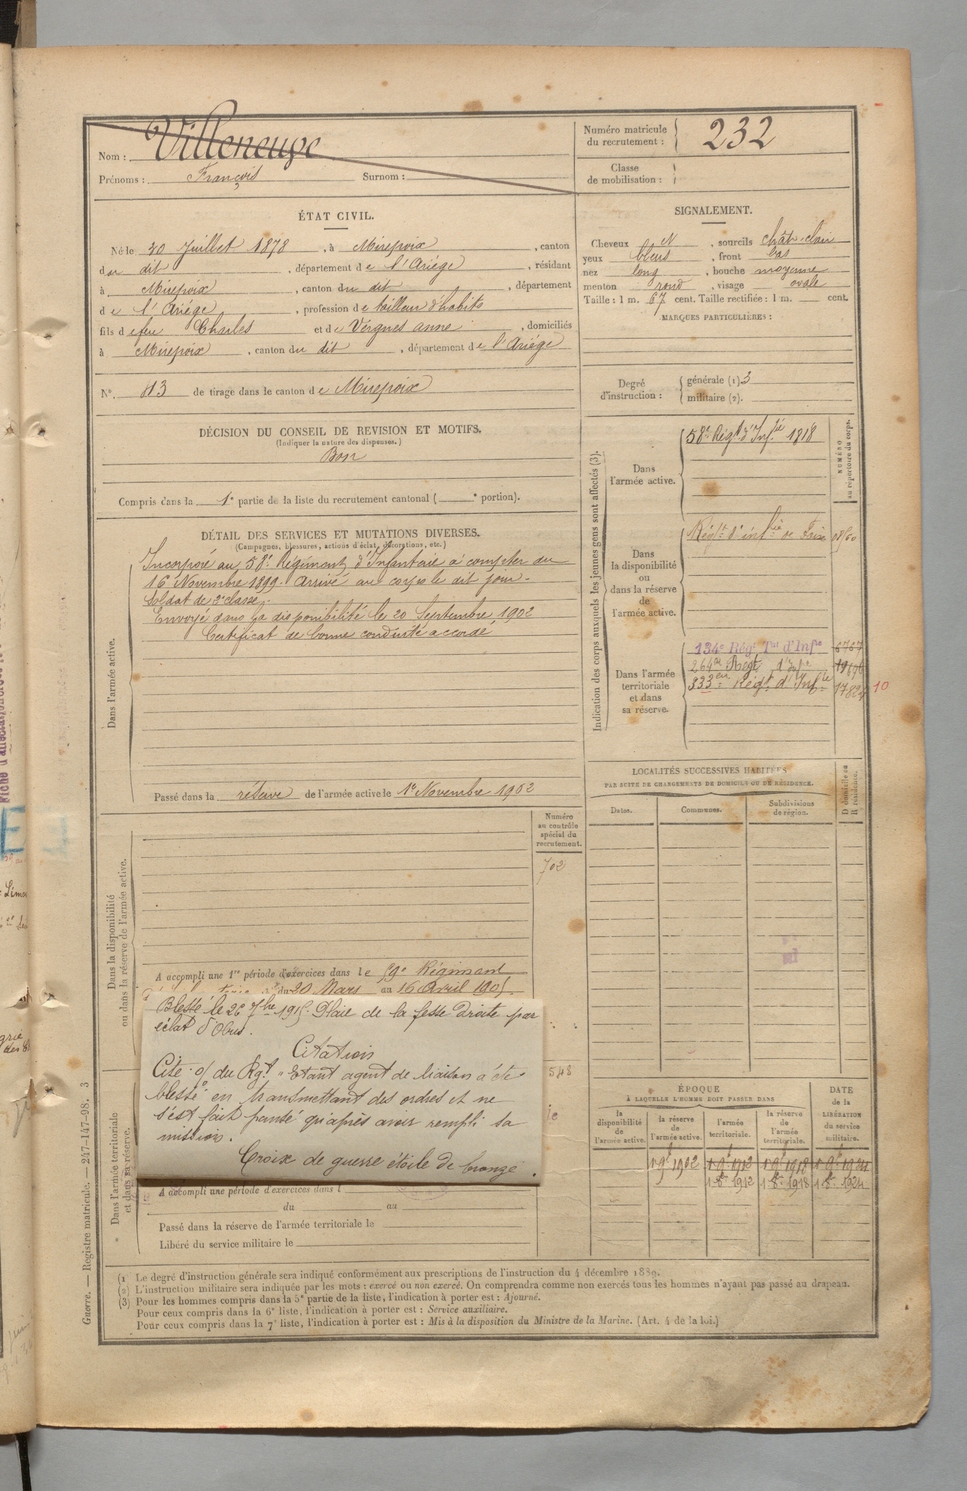 Nom : Villeneuve
Prénoms : François Surnom :
Numéro matricule du recrutement : 232
Classe de mobilisation :
ÉTAT CIVIL.
Né le 30 Juillet 1878, à Mirepoix, canton
du dit, département de l'Ariège, résidant
à Mirepoix, canton du dit, département
de l'Ariège, profession de tailleur d'habits
fils de feu Charles et de Vergnes anne, domiciliés
à Mirepoix, canton du dit, département de l'Ariège
N° 113 de tirage dans le canton de Mirepoix
SIGNALEMENT.
Cheveux et, sourcils chât. clair
yeux bleus, front bas
nez long, bouche moyenne
menton rond, visage ovale
Taille : 1 m. 67 cent. Taille rectifiée : 1 m. cent.
MARQUES PARTICULIÈRES :
Degré d'instruction : générale (1) 3
militaire (2).
DÉCISION DU CONSEIL DE REVISION ET MOTIFS.
(Indiquer la nature des dispenses.)
Bon
Compris dans la 1e partie de la liste du recrutement cantonal ( e portion).
DÉTAIL DES SERVICES ET MUTATIONS DIVERSES.
(Campagnes, blessures, actions d'éclat, décorations, etc.)
Dans l'armée active.
Incorporé au 58e Régiment d'Infanterie à compter du
16 Novembre 1899. Arrivé au corps le dit jour.
Soldat de 2e classe.
Envoyé dans la disponibilité le 20 Septembre 1902
Certificat de bonne conduite accordé
Passé dans la réserve de l'armée active le 1er Novembre 1902
Indication des corps auxquels les jeunes gens sont affectés (3).
NUMÉRO au répertoire du corps.
Dans l'armée active.
58e Régt d'Infie 1818
Dans la disponibilité ou dans la réserve de l'armée active.
Régt d'infie de Foix
Dans l'armée territoriale et dans sa réserve.
134e Rég. Tal d'Infie 6767
264e Régt d'Infie
333e Régt d'Infie
10
LOCALITÉS SUCCESSIVES HABITÉES
PAR SUITE DE CHANGEMENTS DE DOMICILE OU DE RÉSIDENCE.
Dates. Communes. Subdivisions de région. D domicile ou R résidence.
Numéro au contrôle spécial du recrutement.
702
Dans la disponibilité ou dans la réserve de l'armée active.
A accompli une 1re période d'exercices dans le 59e Régiment
du 20 Mars au 16 Avril 1905
Blessé le 26 7bre 1915. Plaie de la fesse droite par
éclat d'obus.
Citation
Cité o/ du Rgt "Etant agent de liaison a été
blessé en transmettant des ordres et ne
s'est fait pensé qu'après avoir rempli sa
mission.
Croix de guerre étoile de bronze.
548
Dans l'armée territoriale et dans sa réserve.
A accompli une période d'exercices dans l
du au
Passé dans la réserve de l'armée territoriale le
Libéré du service militaire le
ÉPOQUE
À LAQUELLE L'HOMME DOIT PASSER DANS
la disponibilité de l'armée active.
la réserve de l'armée active.
l'armée territoriale.
la réserve de l'armée territoriale.
DATE de la LIBÉRATION du service militaire.
1 9e 1902 1 9e 1912 1 9e 1918 1 9e 1924
1 8e 1912 1 8e 1918 1 8e 1924
(1) Le degré d'instruction générale sera indiqué conformément aux prescriptions de l'instruction du 4 décembre 1889.
(2) L'instruction militaire sera indiquée par les mots : exercé ou non exercé. On comprendra comme non exercés tous les hommes n'ayant pas passé au drapeau.
(3) Pour les hommes compris dans la 5e partie de la liste, l'indication à porter est : Ajourné.
Pour ceux compris dans la 6e liste, l'indication à porter est : Service auxiliaire.
Pour ceux compris dans la 7e liste, l'indication à porter est : Mis à la disposition du Ministre de la Marine. (Art. 4 de la loi.)
Guerre. — Registre matricule. — 247-147-98. 3